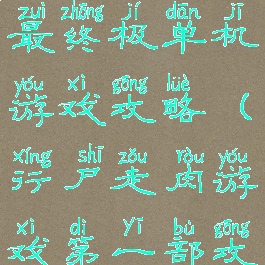 zuì zhōng jí dān jī
最终极单机
yóu xì gōng lüè
游戏攻略(
xíng shī zǒu ròu yóu
行尸走肉游
xì dì yī bù gōng
戏第一部攻